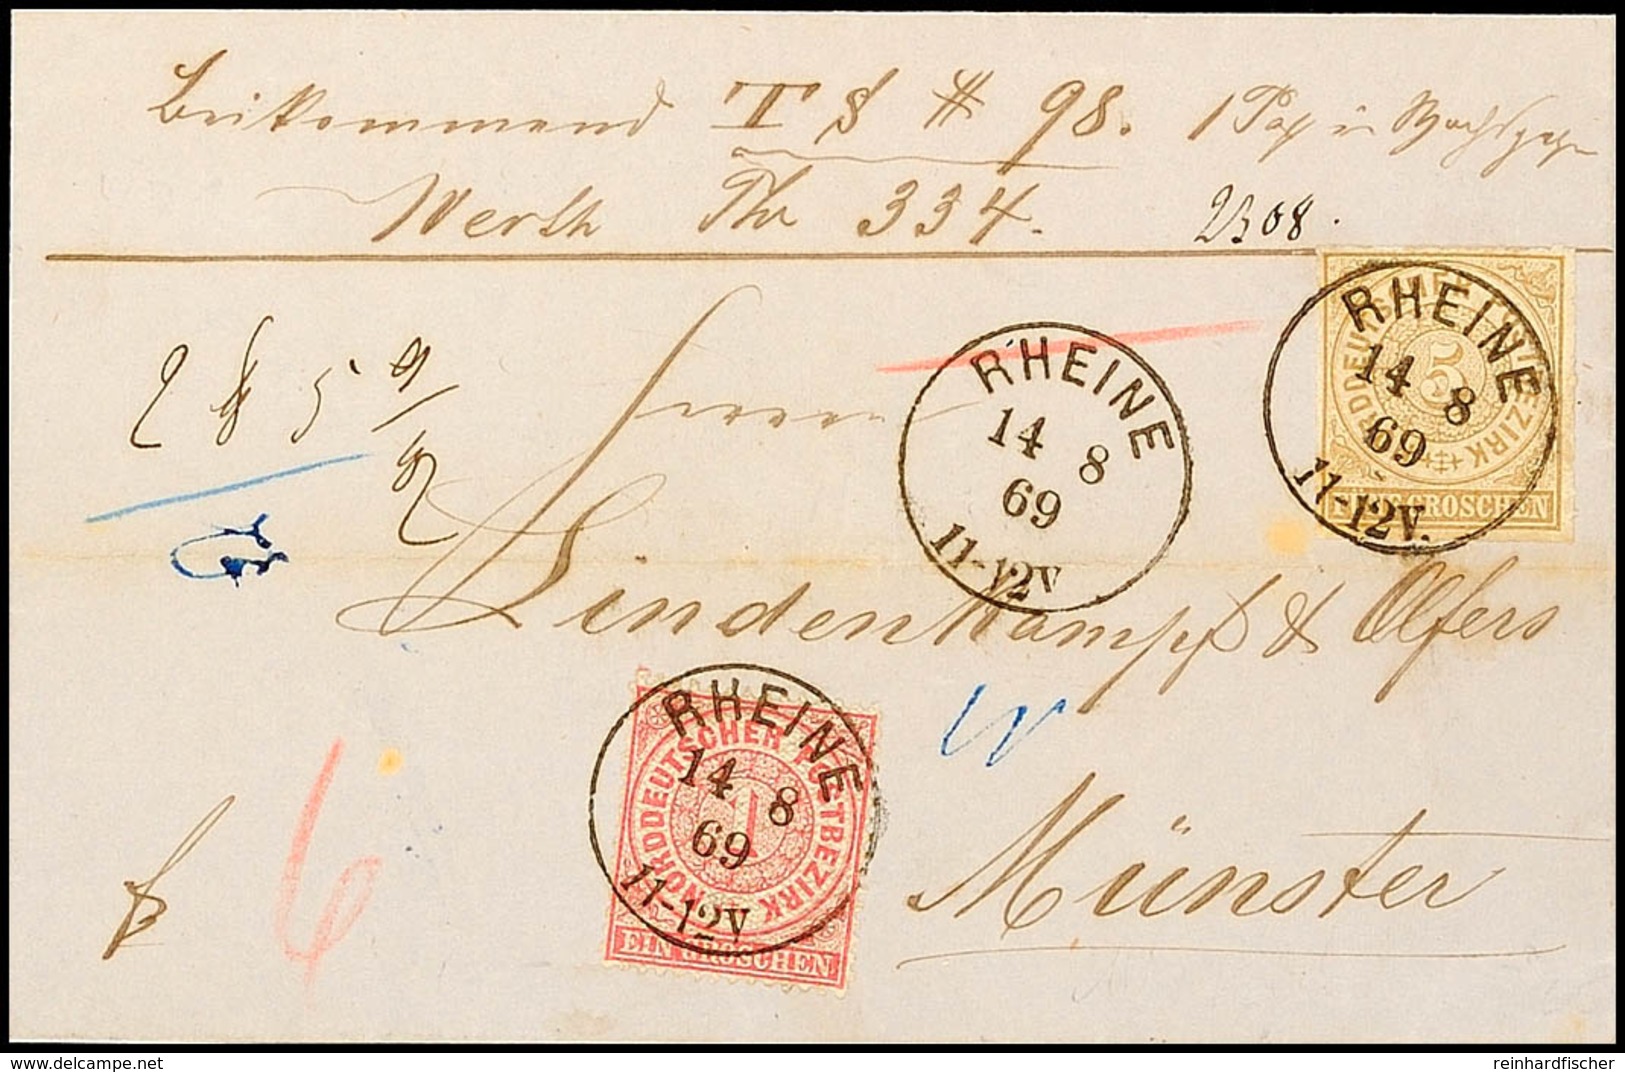 Beikommend T S # 98. 1 Pak in Wachs
Werth Thr 334. 2308.
2 5
Herrn
Lindenkampf & Olfers
Münster
6
RHEINE
14 8
69
11-12V
RHEINE
14 8
69
11-12V.
NORDDEUTSCHER POSTBEZIRK
5
FÜNF GROSCHEN
RHEINE
14 8
69
11-12V
NORDDEUTSCHER POSTBEZIRK
1
EIN GROSCHEN
delcampe.net
reinhardfischer